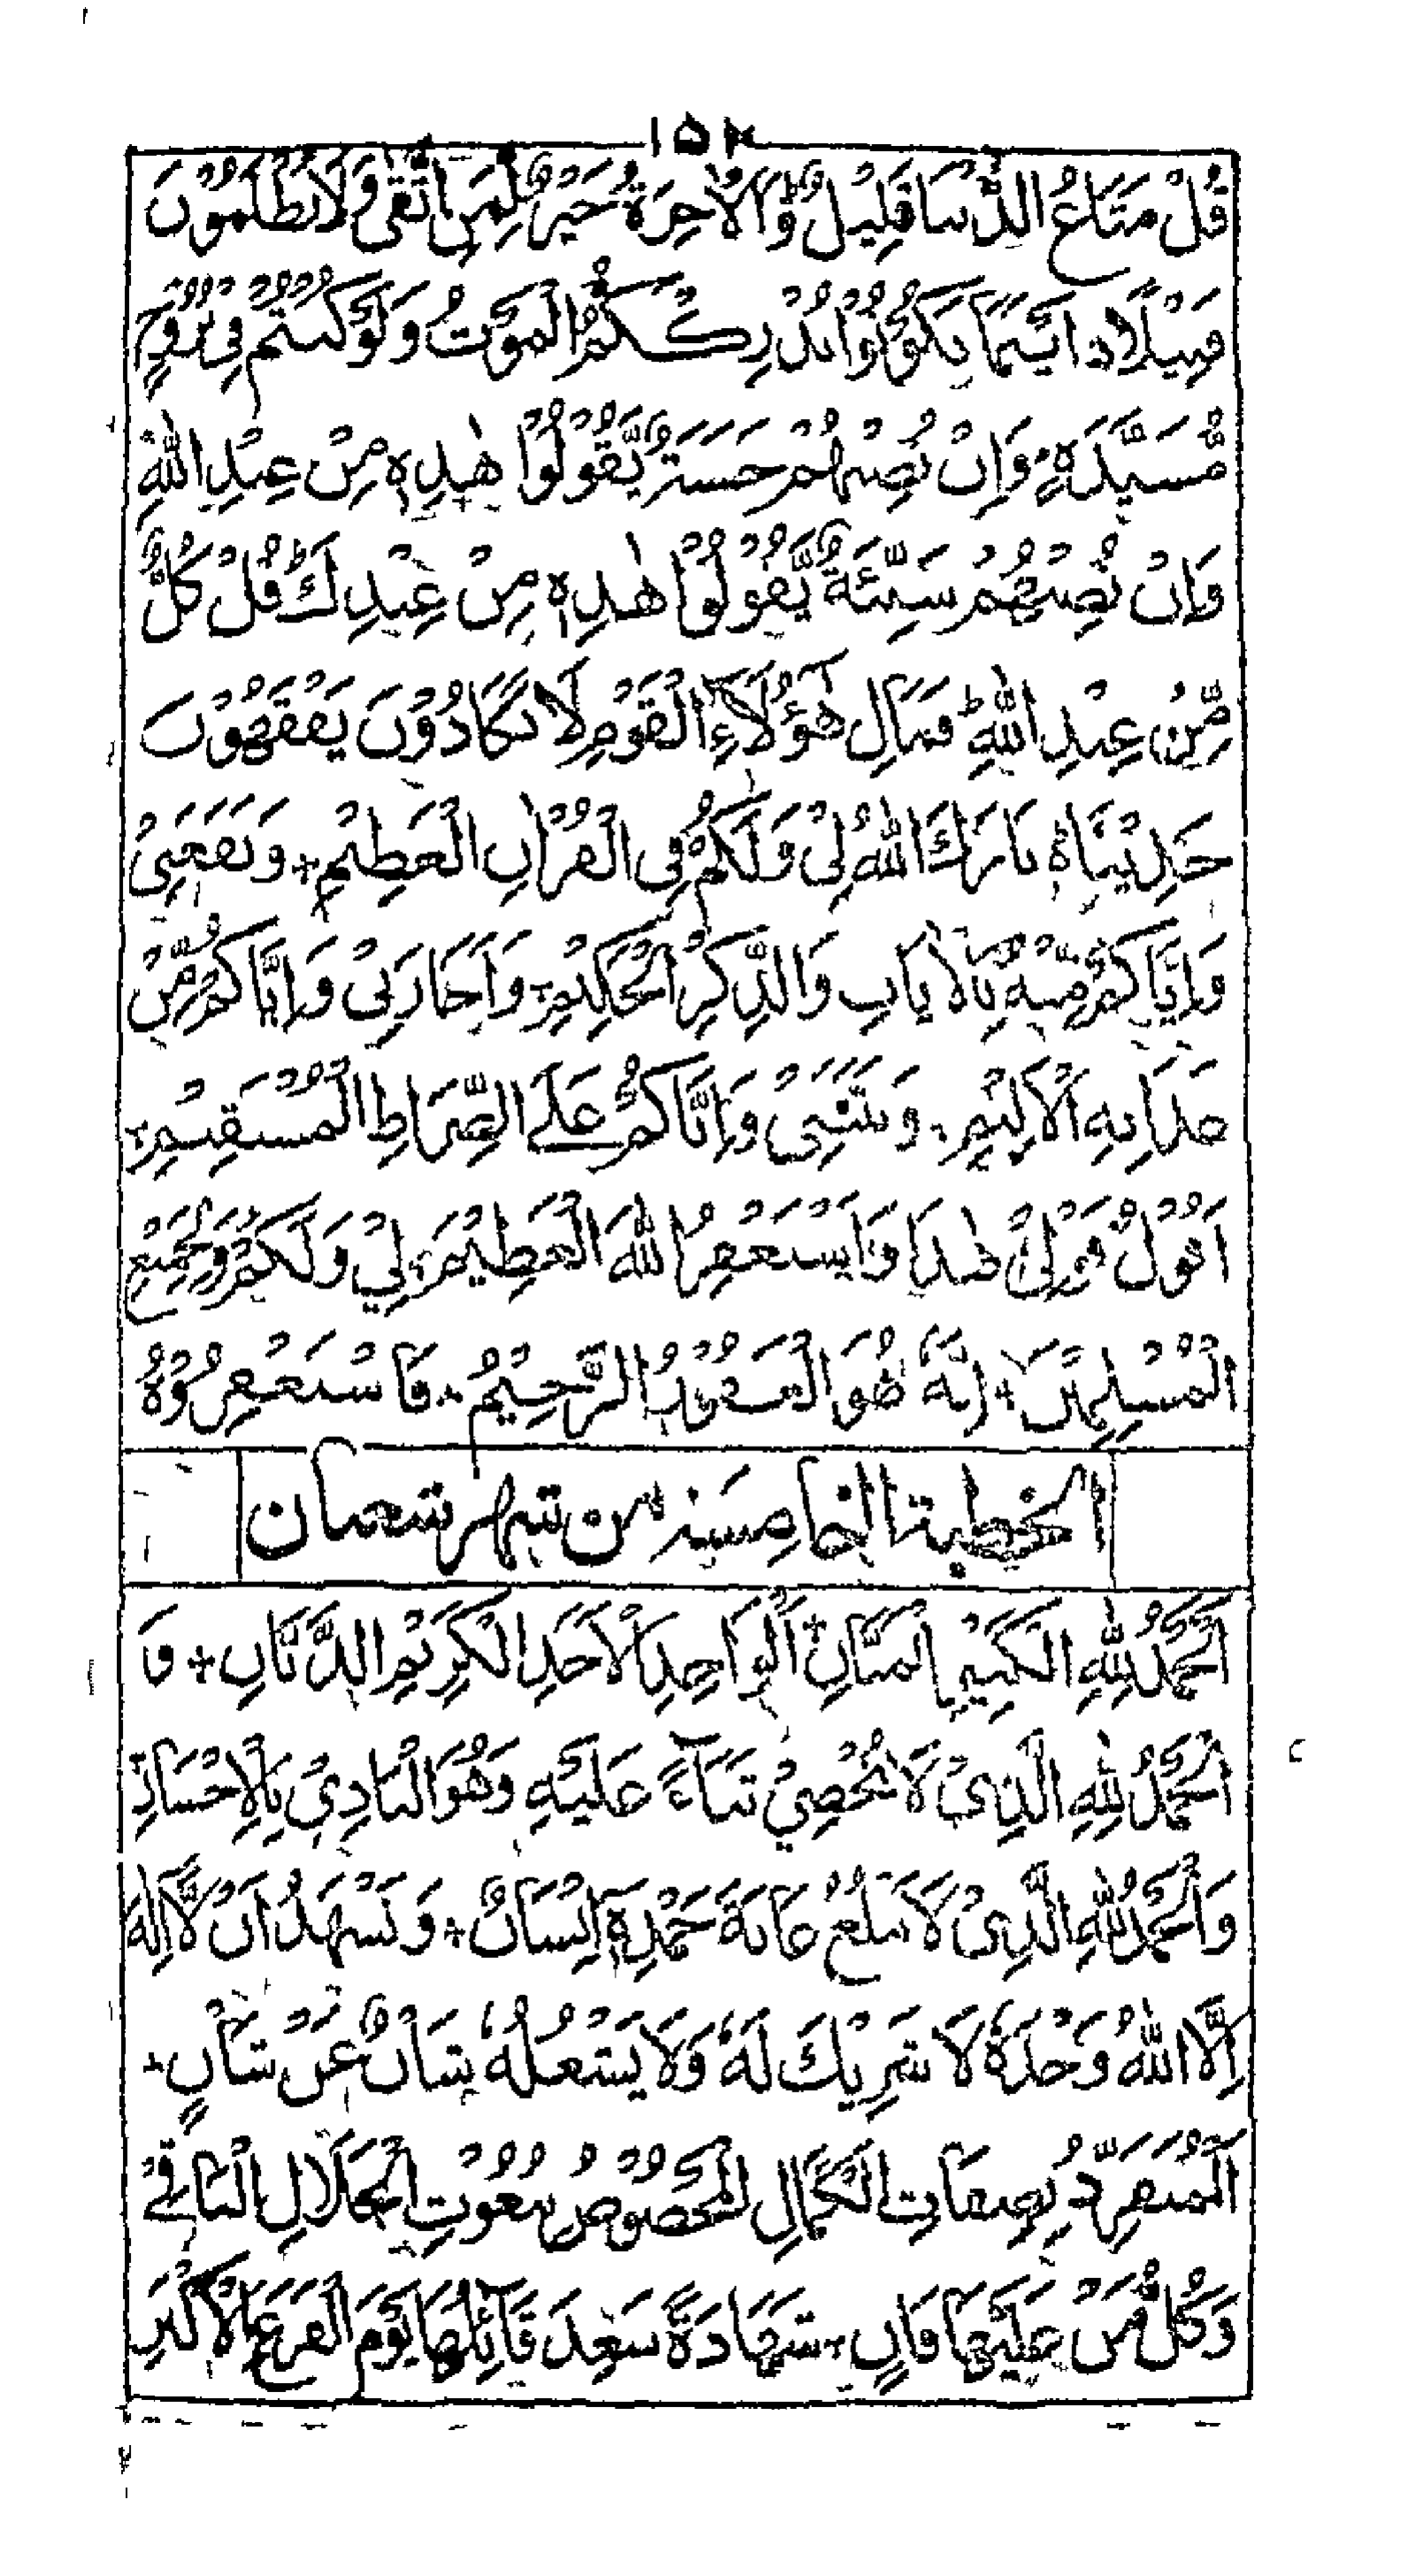 ١٥٢
قُلْ مَتَاعُ الدُّنْيَا قَلِيْلٌ وَالْاٰخِرَةُ خَيْرٌ لِّمَنِ اتَّقٰى وَلَا تُظْلَمُوْنَ
فَتِيْلًا ۝ اَيْنَمَا تَكُوْنُوْا يُدْرِكْكُّمُ الْمَوْتُ وَلَوْ كُنْتُمْ فِيْ بُرُوْجٍ
مُّشَيَّدَةٍ وَاِنْ تُصِبْهُمْ حَسَنَةٌ يَّقُوْلُوْا هٰذِهٖ مِنْ عِنْدِ اللّٰهِ
وَاِنْ تُصِبْهُمْ سَيِّئَةٌ يَّقُوْلُوْا هٰذِهٖ مِنْ عِنْدِكَ ط قُلْ كُلٌّ
مِّنْ عِنْدِ اللّٰهِ ط فَمَالِ هٰٓؤُلَآءِ الْقَوْمِ لَا يَكَادُوْنَ يَفْقَهُوْنَ
حَدِيْثًا ۝ بَارَكَ اللّٰهُ لِيْ وَلَكُمْ فِي الْقُرْاٰنِ الْعَظِيْمِ + وَنَفَعَنِيْ
وَاِيَّاكُمْ مِّنْهُ بِالْاٰيَاتِ وَالذِّكْرِ الْحَكِيْمِ + وَاَجَارَنِيْ وَاِيَّاكُمْ مِّنْ
عَذَابِهِ الْاَلِيْمِ + وَثَبَّتَنِيْ وَاِيَّاكُمْ عَلَى الصِّرَاطِ الْمُسْتَقِيْمِ +
اَقُوْلُ قَوْلِيْ هٰذَا وَاَسْتَغْفِرُ اللّٰهَ الْعَظِيْمَ لِيْ وَلَكُمْ وَلِجَمِيْعِ
الْمُسْلِمِيْنَ + اِنَّهٗ هُوَ الْغَفُوْرُ الرَّحِيْمُ + فَاسْتَغْفِرُوْهُ
الخطبة الخامسة من شهر شعبان
اَلْحَمْدُ لِلّٰهِ الْكَبِيْرِ الْمَنَّانِ + اَلْوَاحِدِ الْاَحَدِ الْكَرِيْمِ الدَّيَّانِ + وَ
الْحَمْدُ لِلّٰهِ الَّذِيْ لَا نُحْصِيْ ثَنَآءً عَلَيْهِ وَهُوَ الْبَادِيْ بِالْاِحْسَانِ
وَالْحَمْدُ لِلّٰهِ الَّذِيْ لَا يَبْلُغُ غَايَةَ حَمْدِهٖ اِنْسَانٌ + وَنَشْهَدُ اَنْ لَّا اِلٰهَ
اِلَّا اللّٰهُ وَحْدَهٗ لَا شَرِيْكَ لَهٗ وَلَا يَشْغَلُهٗ شَأْنٌ عَنْ شَأْنٍ +
اَلْمُتَفَرِّدُ بِصِفَاتِ الْكَمَالِ الْمَخْصُوْصُ بِنُعُوْتِ الْجَلَالِ الْبَاقِيْ
وَكُلُّ مَنْ عَلَيْهَا فَانٍ + شَهَادَةً سَعِدَ قَآئِلُهَا يَوْمَ الْفَزَعِ الْاَكْبَرِ